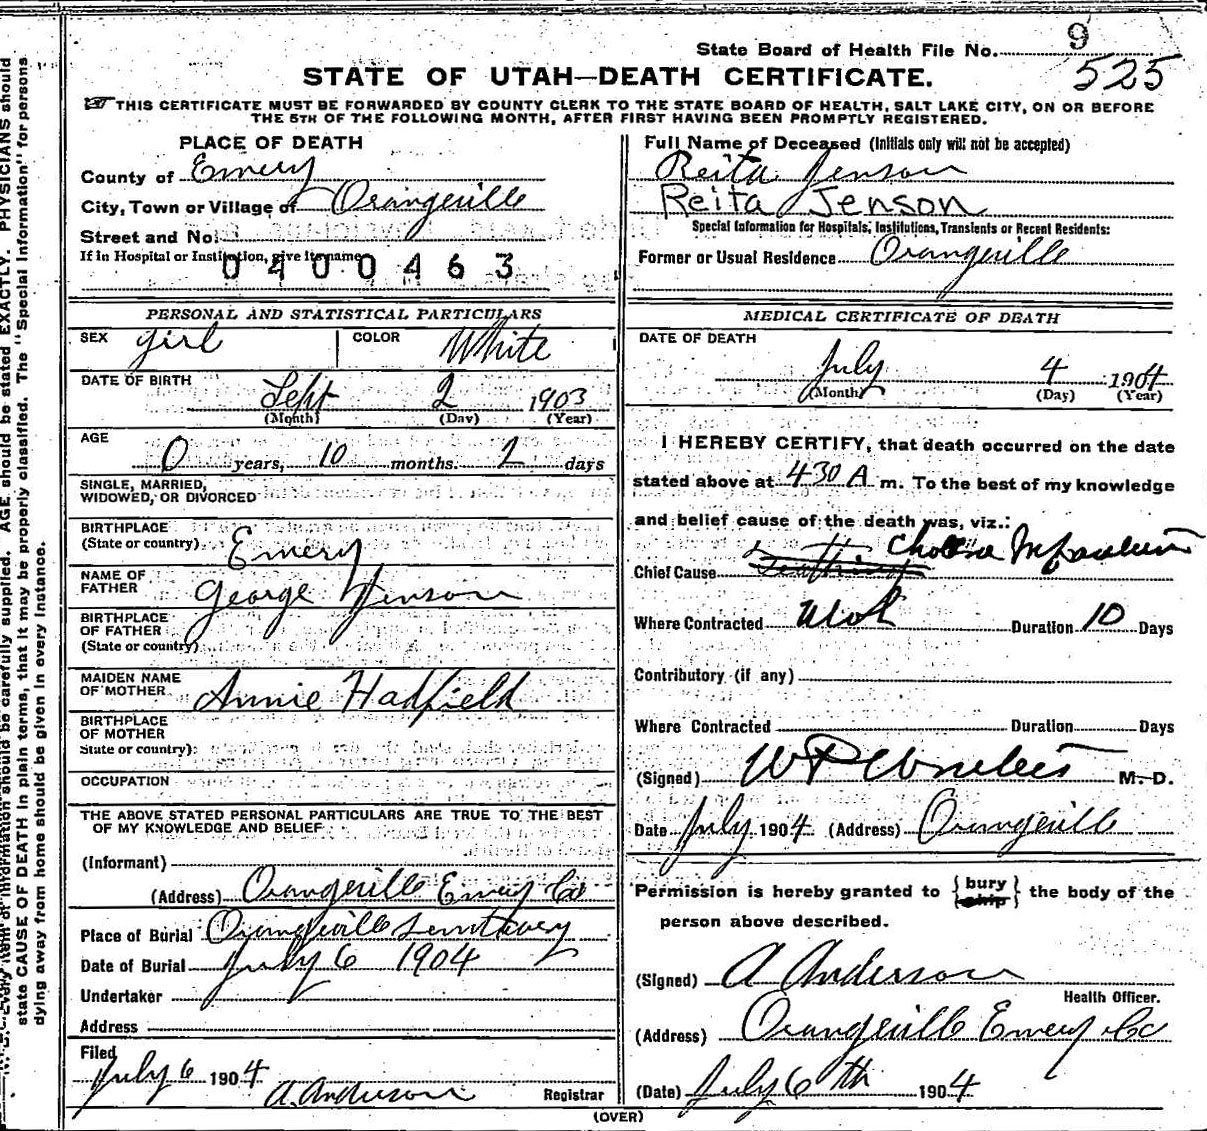 State Board of Health File No. 9
525
STATE OF UTAH—DEATH CERTIFICATE.
THIS CERTIFICATE MUST BE FORWARDED BY COUNTY CLERK TO THE STATE BOARD OF HEALTH, SALT LAKE CITY, ON OR BEFORE
THE 5TH OF THE FOLLOWING MONTH, AFTER FIRST HAVING BEEN PROMPTLY REGISTERED.
PLACE OF DEATH
County of Emery
City, Town or Village of Orangeville
Street and No.
If in Hospital or Institution, give its name
0400463
Full Name of Deceased (Initials only will not be accepted)
Reita Jenson
Reita Jenson
Special Information for Hospitals, Institutions, Transients or Recent Residents:
Former or Usual Residence Orangeville
PERSONAL AND STATISTICAL PARTICULARS
SEX girl COLOR White
DATE OF BIRTH
Sept 2 1903
(Month) (Day) (Year)
AGE
0 years, 10 months. 2 days
SINGLE, MARRIED,
WIDOWED, OR DIVORCED
BIRTHPLACE
(State or country) Emery
NAME OF
FATHER George Jenson
BIRTHPLACE
OF FATHER
(State or country)
MAIDEN NAME
OF MOTHER Annie Hadfield
BIRTHPLACE
OF MOTHER
State or country)
OCCUPATION
THE ABOVE STATED PERSONAL PARTICULARS ARE TRUE TO THE BEST
OF MY KNOWLEDGE AND BELIEF
(Informant)
(Address) Orangeville Emery Co
Place of Burial Orangeville
Date of Burial July 6 1904
Undertaker
Address
Filed
July 6 1904 A. Anderson Registrar
MEDICAL CERTIFICATE OF DEATH
DATE OF DEATH
July 4 1904
(Month) (Day) (Year)
I HEREBY CERTIFY, that death occurred on the date
stated above at 430 A m. To the best of my knowledge
and belief cause of the death was, viz.:
Chief Cause Teething Cholera Infantum
Where Contracted Duration 10 Days
Contributory (if any)
Where Contracted Duration Days
(Signed) M.D.
Date July 1904 (Address) Orangeville
Permission is hereby granted to {bury ship} the body of the
person above described.
(Signed) A Anderson
Health Officer.
(Address) Orangeville Emery Co
(Date) July 6th 1904
(OVER)
state CAUSE OF DEATH in plain terms, that it may be properly classified. The "Special Information" for persons
dying away from home should be given in every instance.